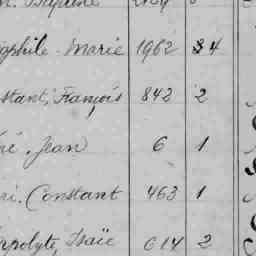 ophile Marie 1962 34
stant, François 842 2
ré Jean 6 1
ri. Constant 463 1
ppolyte, Isaïe 614 2